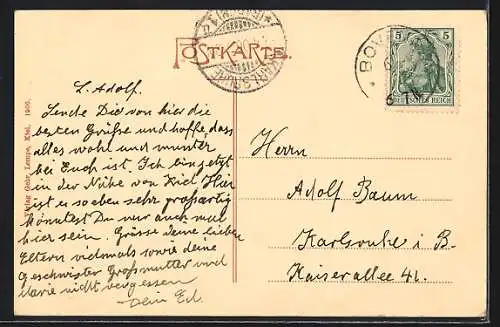 POSTKARTE.
KARLSRUHE
BOV
5 5
DEUTSCHES REICH
L. Adolf.
Sende Dir von hier die
besten Grüsse und hoffe, dass
alles wohl und munter
bei Euch ist. Ich bin jetzt
in der Nähe von Kiel Hier
ist es so eben sehr großartig
könntest Du nur auch mal
hier sein. Grüsse deine lieben
Eltern vielmals sowie deine
Geschwister Großmutter und
Marie nicht vergessen
Dein Ed.
Herrn
Adolf Baum
Karlsruhe i B.
Kaiserallee 41.
Verlag Gebr. Lempe, Kiel. 1906.